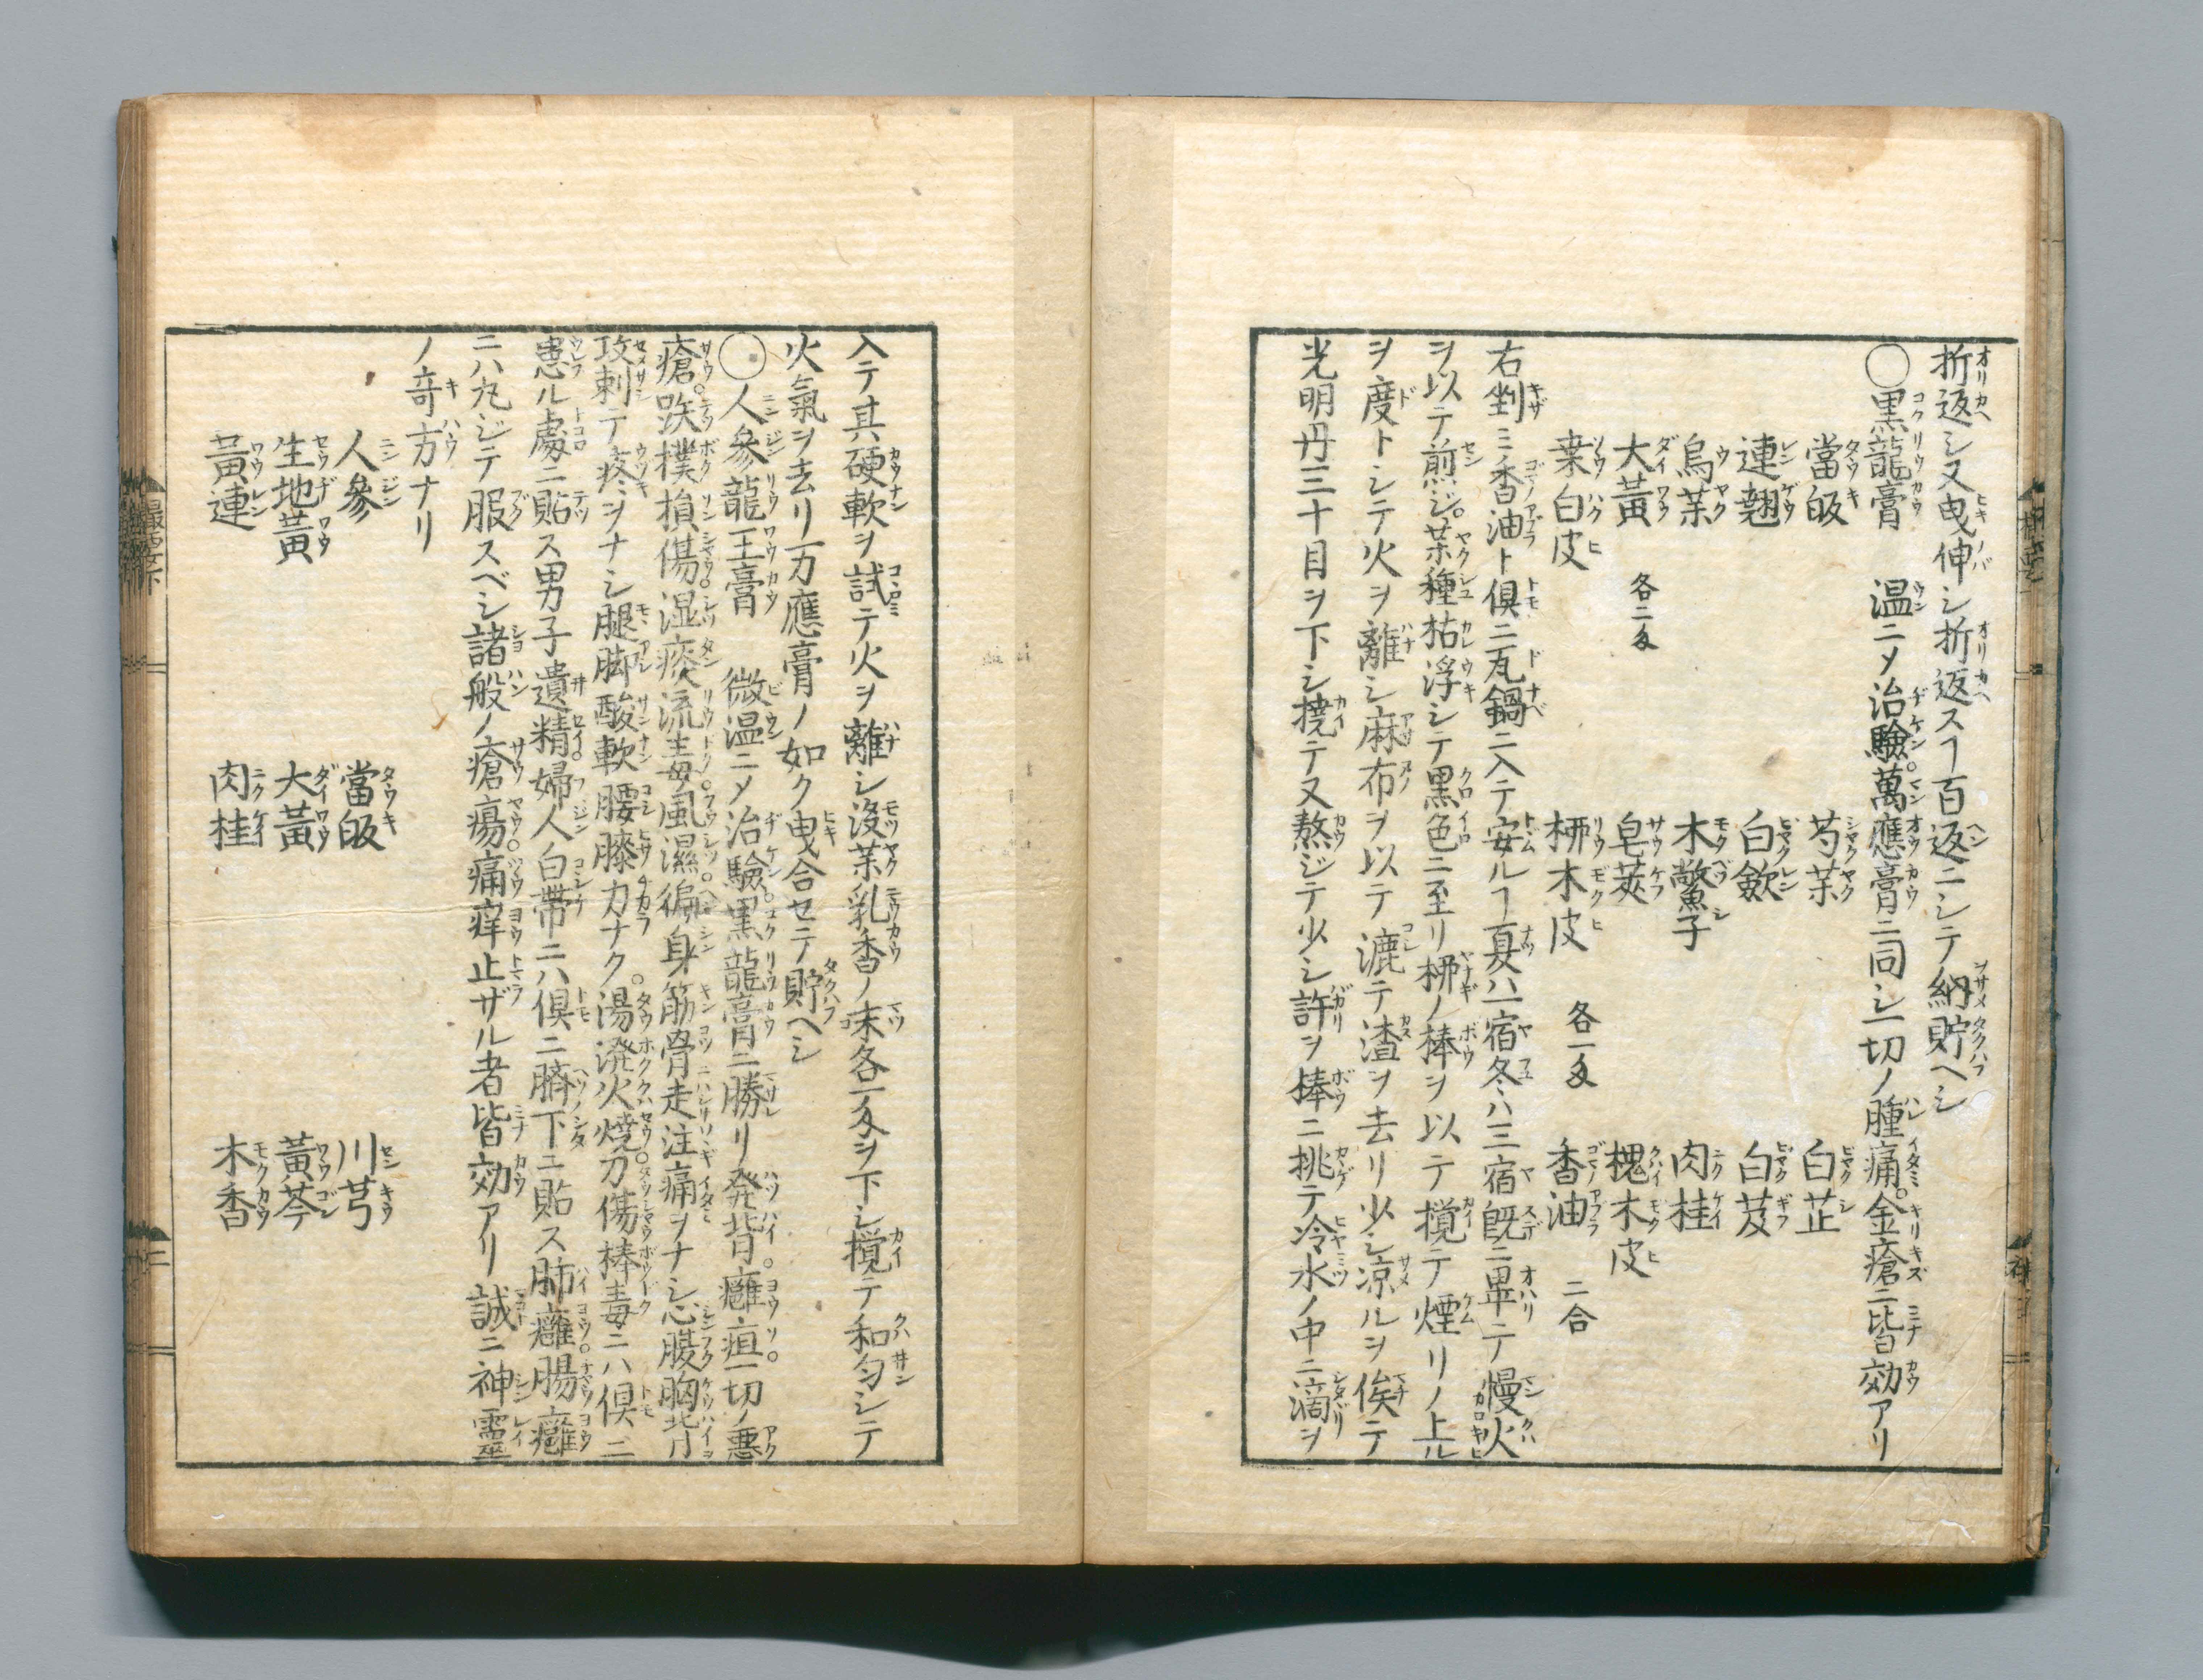 折返シ又曳伸シ折返スヿ百返ニシテ納貯ヘシ
○黒龍膏　温ニメ治驗萬應膏ニ同シ一切ノ腫痛。金瘡ニ皆効アリ
當皈　芍薬　白芷
連翹　白歛　白芨
烏薬　木鼈子　肉桂
大黃　各二匁　皂莢　槐木皮
桒白皮　柳木皮　各一匁　香油　二合
右剉ミ香油ト俱ニ瓦鍋ニ入テ安ルヿ夏ハ一宿冬ハ三宿既ニ畢テ慢火
ヲ以テ煎ジ。薬種枯浮シテ黒色ニ至リ柳ノ棒ヲ以テ攪テ煙リノ上ル
ヲ度トシテ火ヲ離シ麻布ヲ以テ漉テ渣ヲ去リ少シ涼ルヲ俟テ
光明丹三十目ヲ下シ撓テ又熬ジテ少シ許ヲ棒ニ挑テ冷水ノ中ニ滴ヲ
入テ其硬軟ヲ試テ火ヲ離シ没薬乳香ノ末各一匁ヲ下シ攪テ和匀シテ
火氣ヲ去リ万應膏ノ如ク曳合セテ貯ヘシ
○人參龍王膏　微温ニメ治驗。黒龍膏ニ勝リ発背。癰疽。一切ノ悪
瘡。跌撲損傷。湿痰流毒。風濕。徧身筋骨走注痛ヲナシ心腹胸背
攻刺テ疼ヲナシ腿脚酸軟腰膝力ナク。湯潑火燒。刀傷棒毒ニハ俱ニ
患ル處ニ貼ス男子遺精。婦人白帶ニハ俱ニ臍下ニ貼ス肺癰。腸癰
ニハ丸ジテ服スベシ諸般ノ瘡瘍。痛痒止ザル者皆効アリ誠ニ神靈
ノ竒方ナリ
人參　當皈　川芎
生地黃　大黃　黃芩
黃連　肉桂　木香